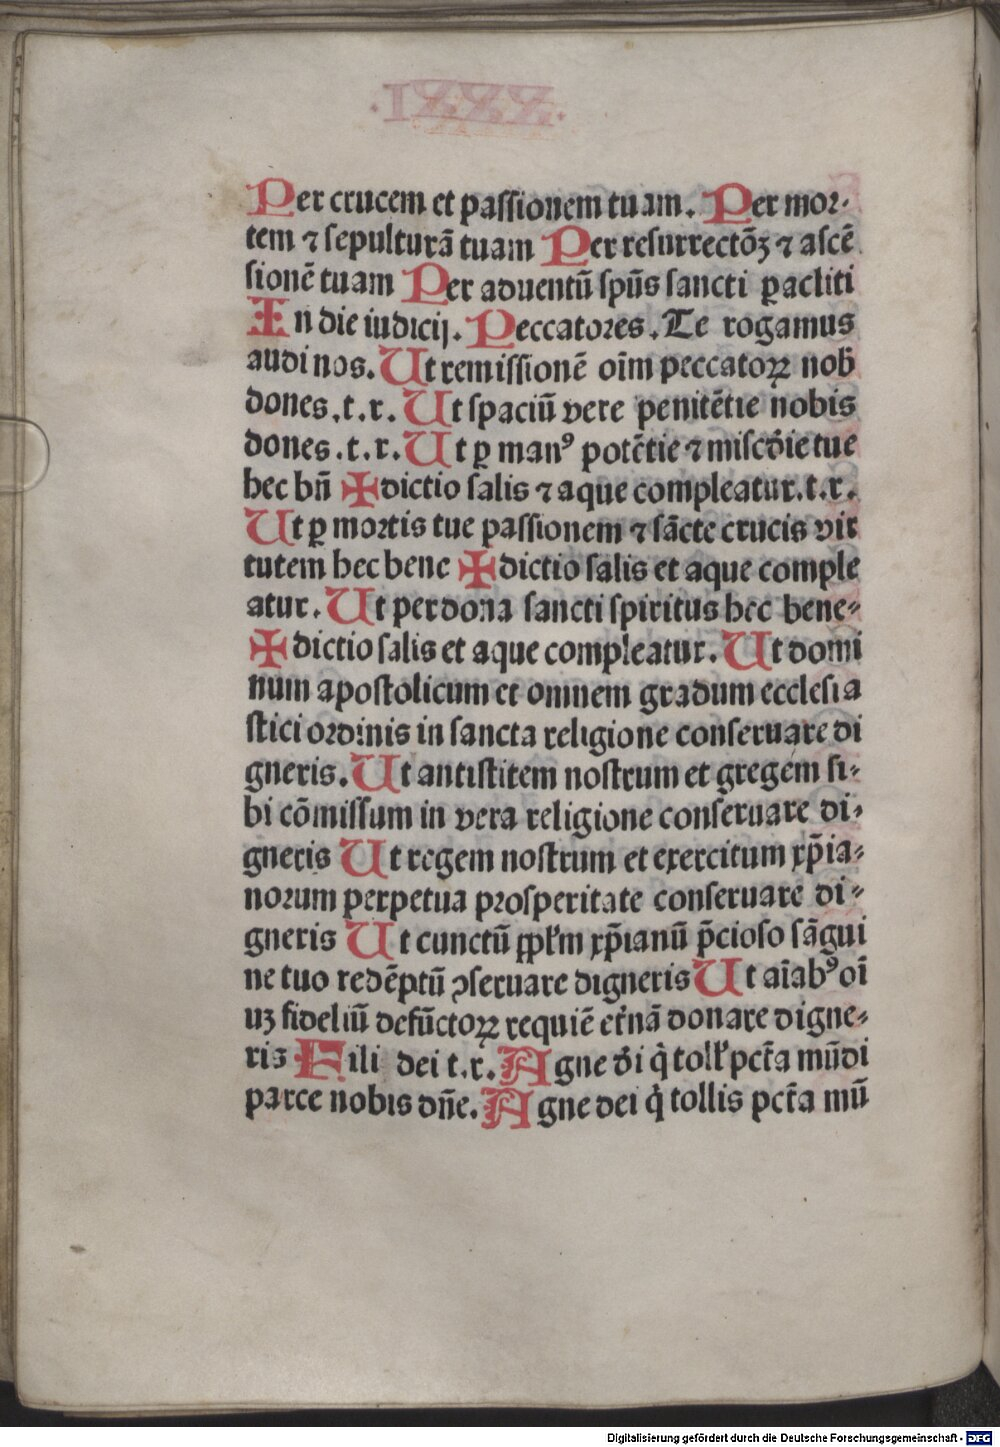 Per crucem et passionem tuam. Per mor-
tem ⁊ sepulturā tuam Per resurrectōꝫ ⁊ ascē
sionē tuam Per aduentū spūs sancti ꝑacliti
In die iudicij. Peccatores. Te rogamus
audi nos. Ut remissionē oīm peccatoꝝ nob̄
dones.t.r. Ut spaciū vere penitētie nobis
dones.t.r. Ut ꝑ manꝰ potētie ⁊ misc̄die tue
hec bn̄ ✠dictio salis ⁊ aque compleatur.t.r.
Ut ꝑ mortis tue passionem ⁊ sācte crucis vir
tutem hec bene ✠dictio salis et aque comple
atur. Ut per dona sancti spiritus hec bene-
✠dictio salis et aque compleatur. Ut domi
num apostolicum et omnem gradum ecclesia
stici ordinis in sancta religione conseruare di
gneris. Ut antistitem nostrum et gregem si-
bi cōmissum in vera religione conseruare di-
gneris Ut regem nostrum et exercitum xp̄ia-
norum perpetua prosperitate conseruare di-
gneris Ut cunctū ppl̄m xp̄ianū p̄cioso sāgui
ne tuo redēptū ꝯseruare digneris Ut aīabꝰ oī
uꝫ fideliū defūctoꝝ requiē et̄nā donare digne-
ris Fili dei t.r. Agne d̄i q̇ toll̄ pct̄a mūdi
parce nobis dn̄e. Agne dei q̇ tollis pct̄a mū
Digitalisierung gefördert durch die Deutsche Forschungsgemeinschaft - DFG